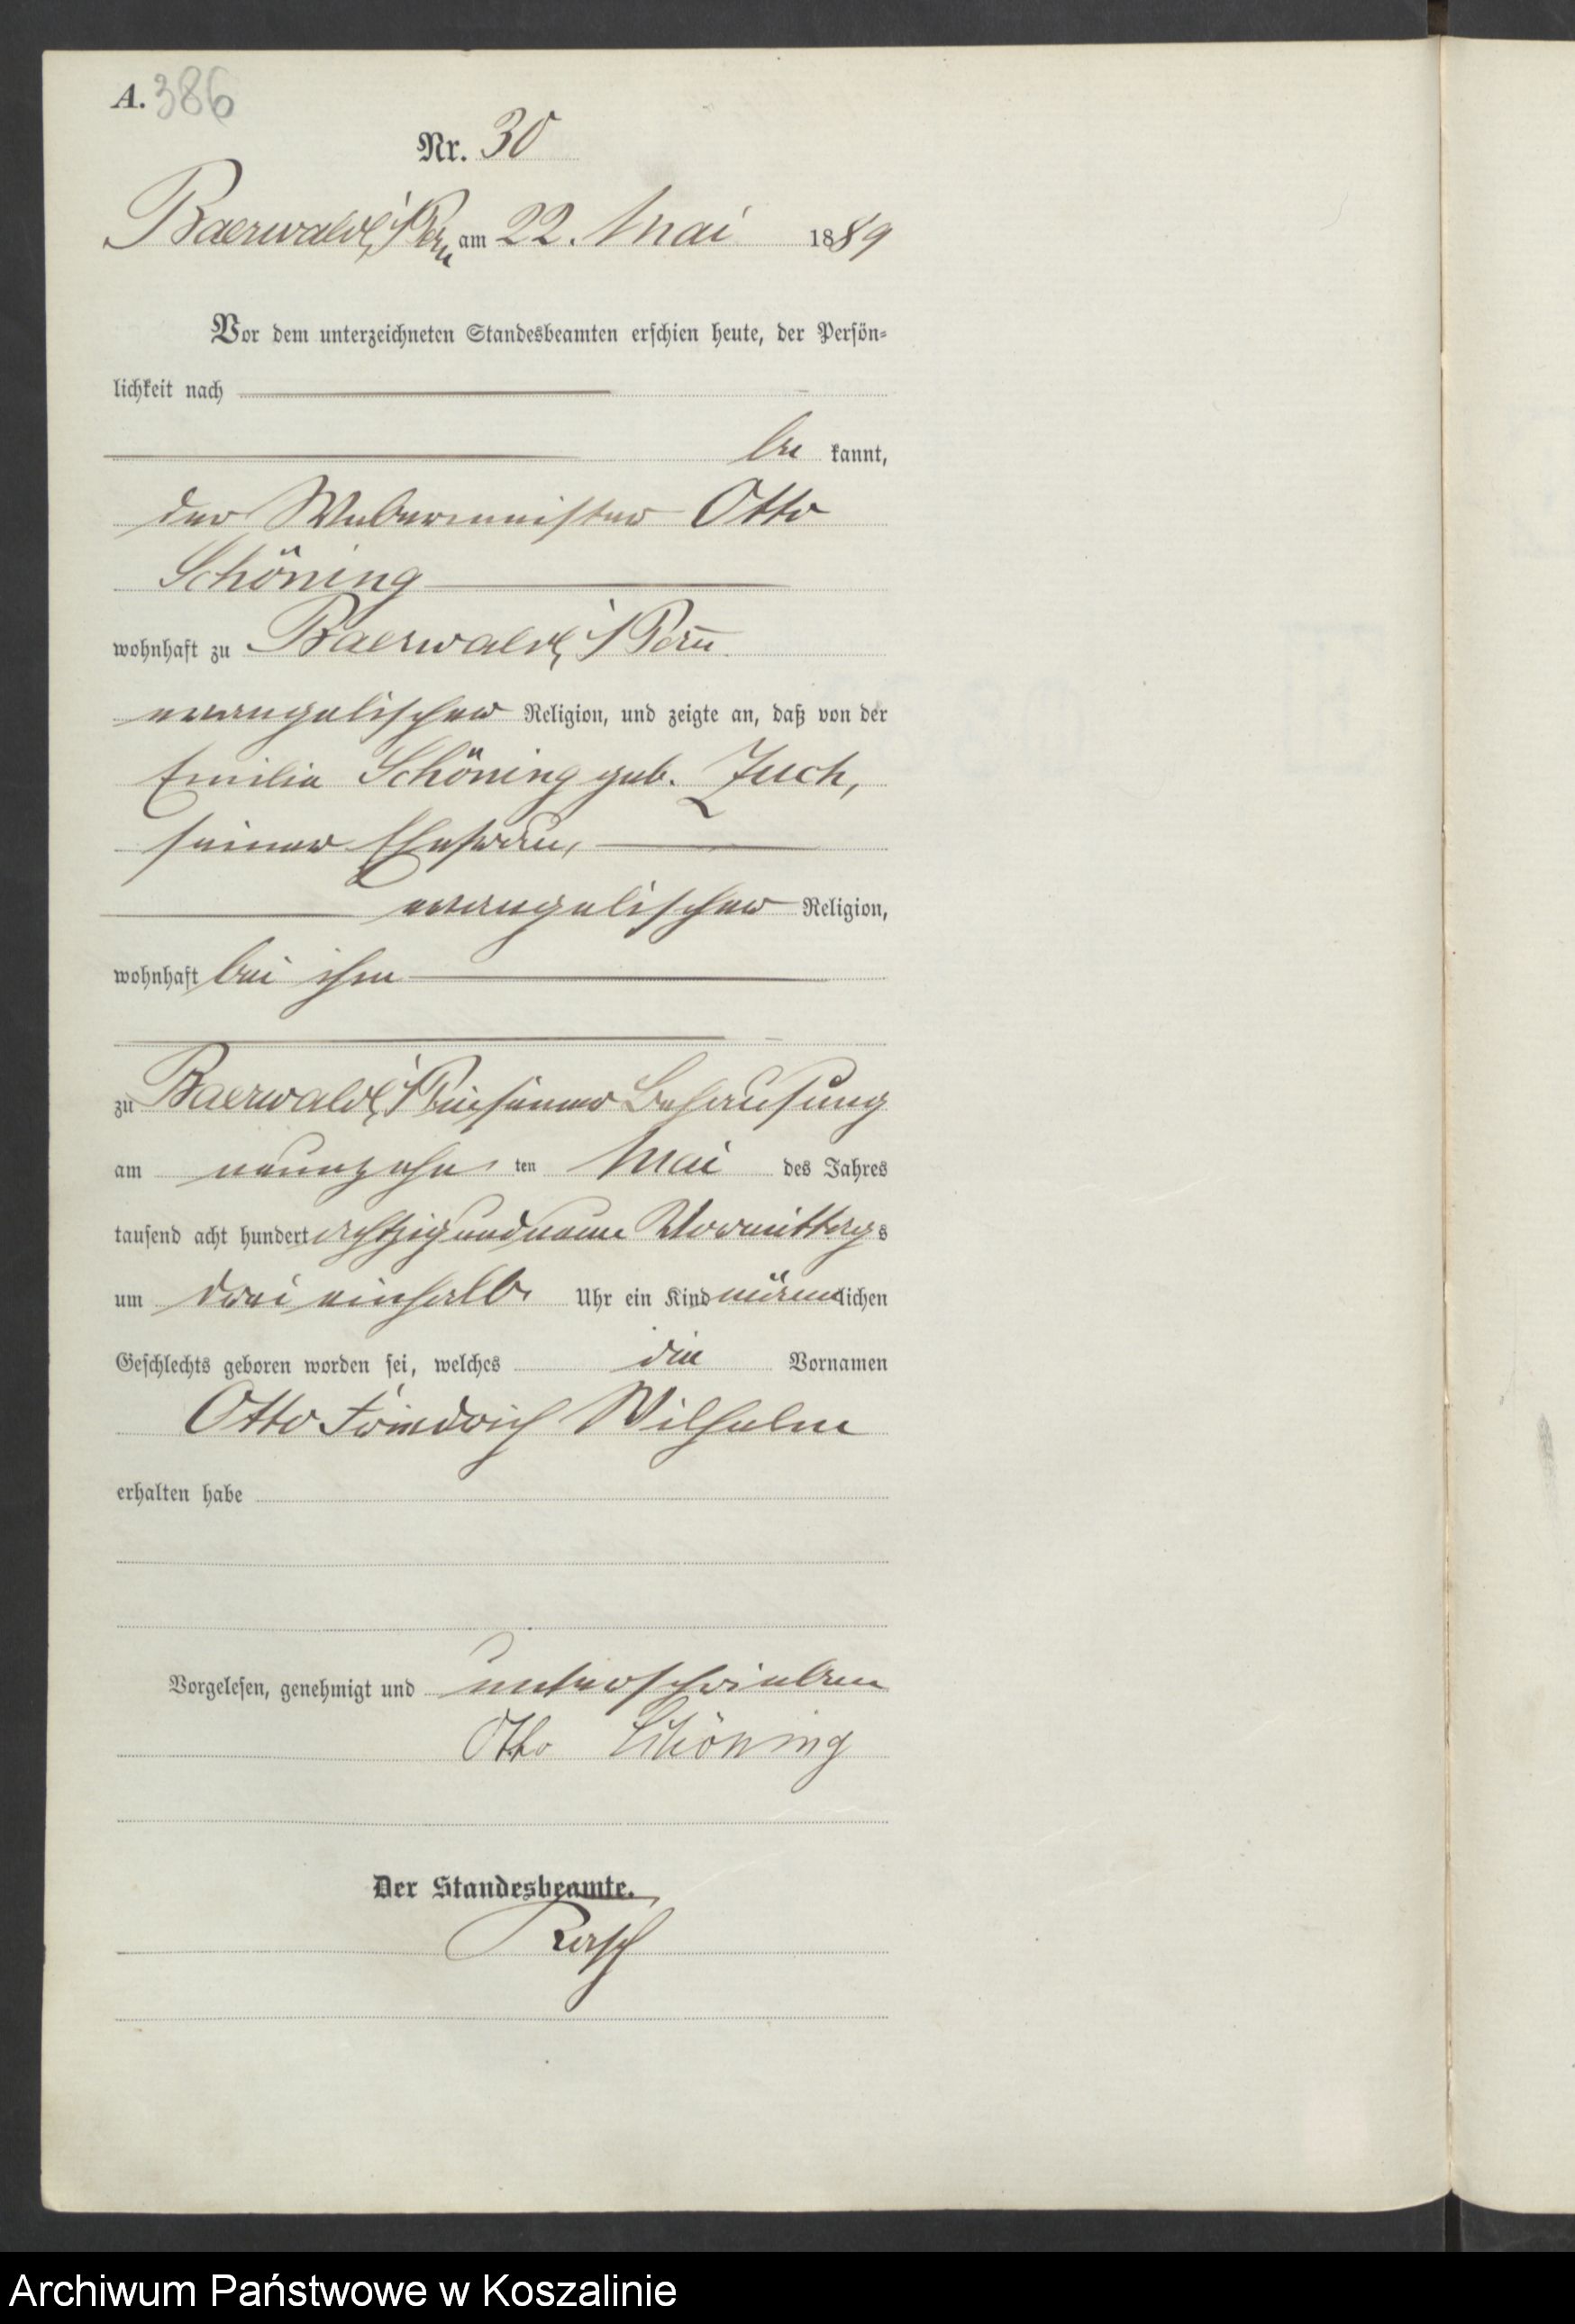 A. 386
Nr. 30
Baerwald, i/Pom am 22. Mai 1889
Vor dem unterzeichneten Standesbeamten erschien heute, der Persön-
lichkeit nach
be kannt,
der Webermeister Otto
Schöning
wohnhaft zu Baerwald, i/Pom̅
evangelischer Religion, und zeigte an, daß von der
Emilie Schöning geb. Zuch,
seiner Ehefrau,
evangelischer Religion,
wohnhaft bei ihm
zu Baerwald, i/P in seiner Behausung
am neunzehn ten Mai des Jahres
tausend acht hundert achtzig und neun Vormittags
um drei einhalb Uhr ein Kind männlichen
Geschlechts geboren worden sei, welches die Vornamen
Otto Friedrich Wilhelm
erhalten habe
Vorgelesen, genehmigt und unterschrieben
Otto Schöning
Der Standesbeamte.
Archiwum Państwowe w Koszalinie